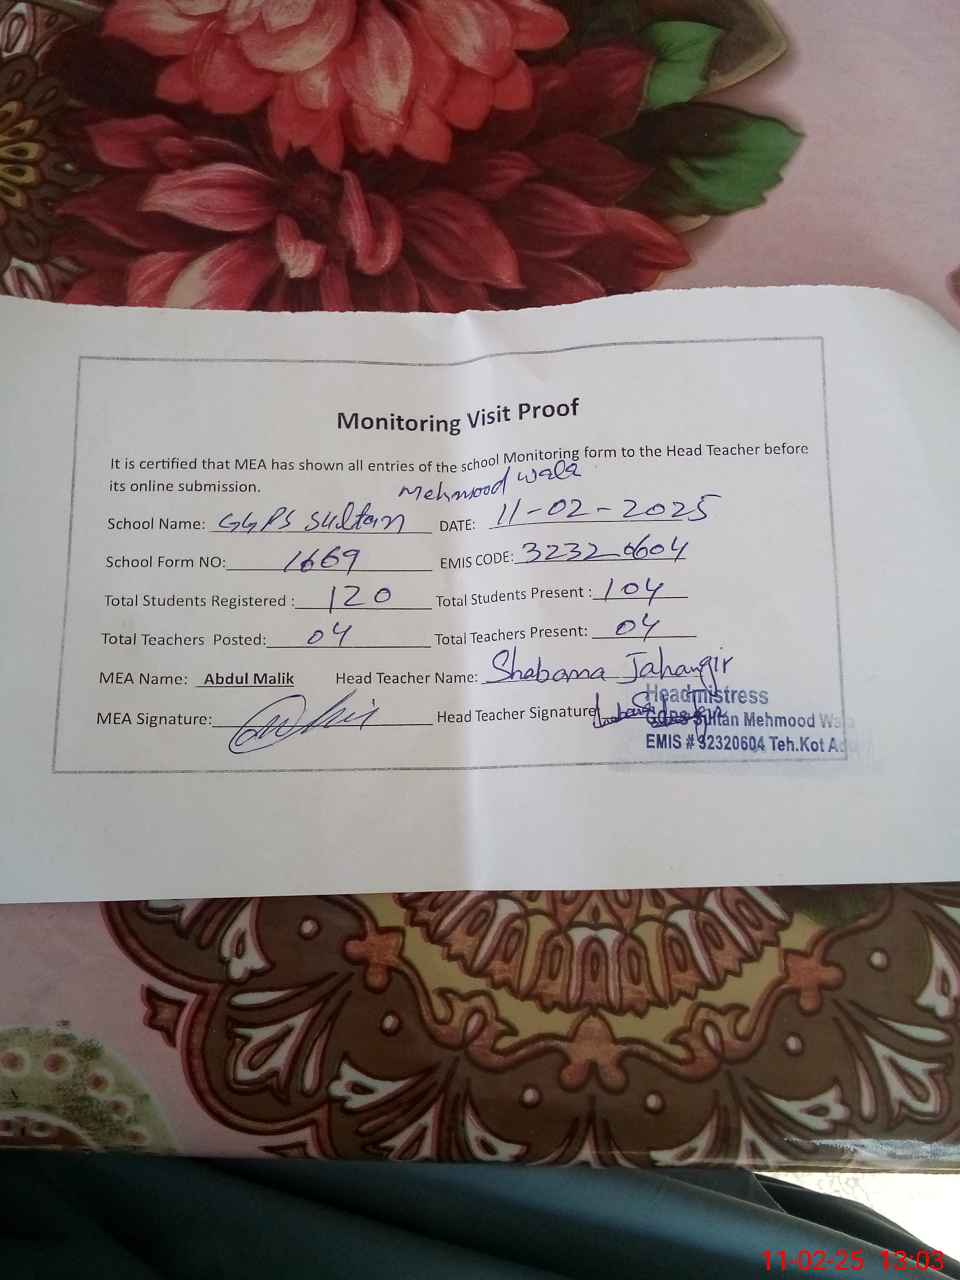 Monitoring Visit Proof
It is certified that MEA has shown all entries of the school Monitoring form to the Head Teacher before
its online submission.
Mehmood wala
School Name: GGPS Sultan DATE: 11-02-2025
School Form NO: 1669 EMIS CODE: 32320604
Total Students Registered : 120 Total Students Present : 104
Total Teachers Posted: 04 Total Teachers Present: 04
MEA Name: Abdul Malik Head Teacher Name: Shabana Jahangir
MEA Signature: Head Teacher Signature
Headmistress
GGPS Sultan Mehmood Wala
EMIS # 32320604 Teh.Kot Addu
11-02-25 13:03